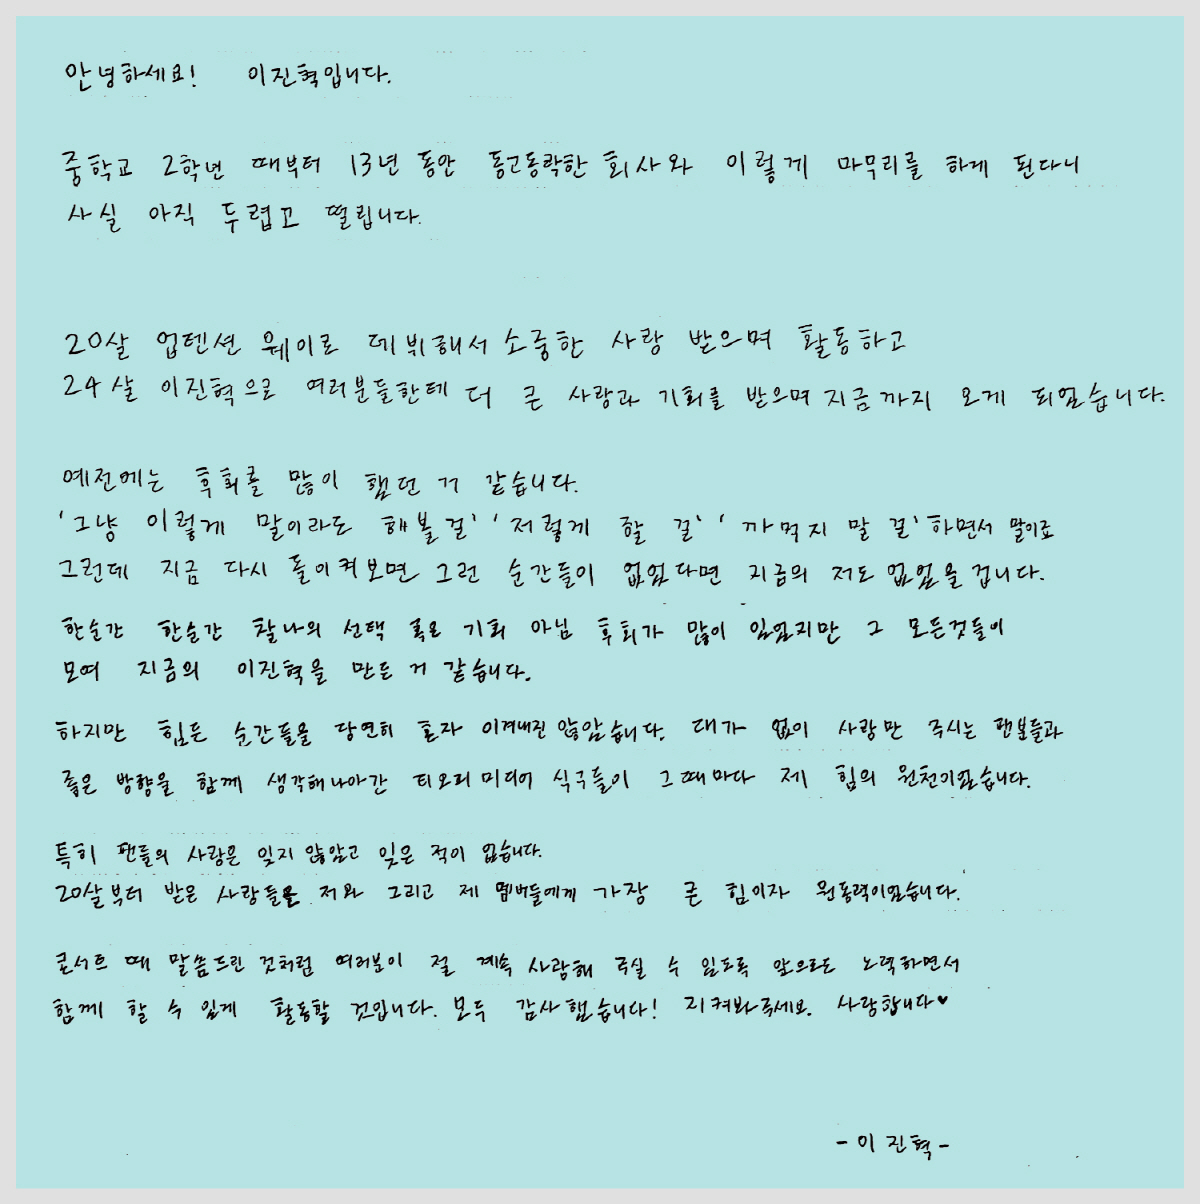 안녕하세요! 이진혁입니다.
중학교 2학년 때부터 13년 동안 동고동락한 회사와 이렇게 마무리를 하게 된다니
사실 아직 두렵고 떨립니다.
20살 업텐션 웨이로 데뷔해서 소중한 사랑 받으며 활동하고
24살 이진혁으로 여러분들한테 더 큰 사랑과 기회를 받으며 지금까지 오게 되었습니다.
예전에는 후회를 많이 했던 거 같습니다.
'그냥 이렇게 말이라도 해볼걸' '저렇게 할 걸' '까먹지 말 걸' 하면서 말이죠
그런데 지금 다시 돌이켜보면 그런 순간들이 없었다면 지금의 저도 없었을겁니다.
한순간 한순간 찰나의 선택 혹은 기회 아님 후회가 많이 있었지만 그 모든것들이
모여 지금의 이진혁을 만든 거 같습니다.
하지만 힘든 순간들을 당연히 혼자 이겨내진 않았습니다. 대가 없이 사랑만 주시는 팬분들과
좋은 방향을 함께 생각해나아간 티오피미디어 식구들이 그때마다 제 힘의 원천이었습니다.
특히 팬들의 사랑은 잊지 않았고 잊은 적이 없습니다.
20살부터 받은 사랑들은 저와 그리고 제 멤버들에게 가장 큰 힘이자 원동력이었습니다.
콘서트 때 말씀드린 것처럼 여러분이 절 계속 사랑해 주실 수 있도록 앞으로도 노력하면서
함께 할 수 있게 활동할 것입니다. 모두 감사했습니다! 지켜봐주세요. 사랑합니다♥
- 이진혁 -